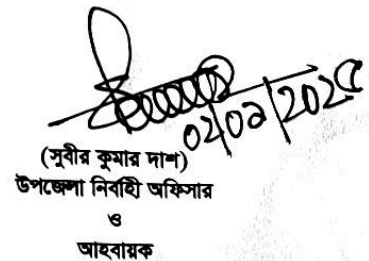 ০২/০৯/২০২৫
(সুবীর কুমার দাশ)
উপজেলা নির্বাহী অফিসার
ও
আহবায়ক